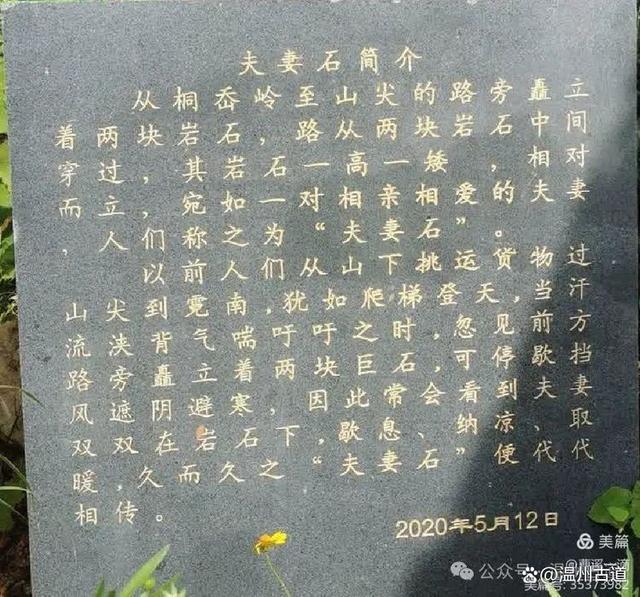 夫妻石简介
从桐岙岭至山尖的路旁矗立
着两块岩石，路从两块岩石中间
穿过，其岩石一高一矮，相对
而立，宛如一对相亲相爱的夫妻
，人们称之为“夫妻石”。
以前人们从山下挑运货物过
山尖到霓南，犹如爬梯登天，当汗
流浃背气喘吁吁之时，忽见前方
路旁矗立着两块巨石，可停歇挡
风遮阴避寒，因此常会看到夫妻
双双在岩石下，歇息、纳凉、取
暖，久而久之“夫妻石”便代代
相传。
2020年5月12日
美篇
公众号
@温州古道
美篇号: 35373982